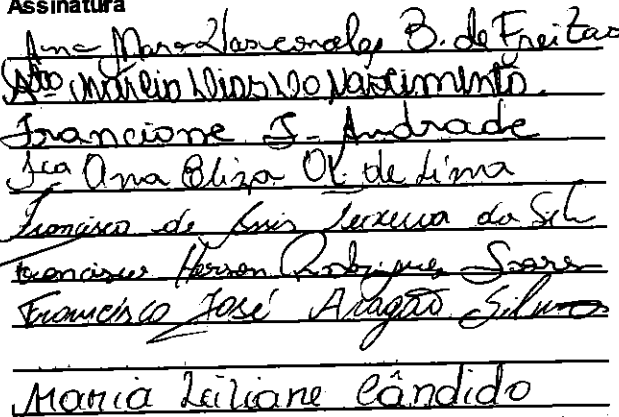 Assinatura
Ana Mara Vasconcelos B. de Freitas
Aᵗᵒ Márcio Dias Do Nascimento.
Francione J. Andrade
Fca Ana Eliza Ol. de Lima
Francisco de Assis Teixeira da Sil
Francisco Herson Rodrigues Soares
Francisco José Aragão Silva
Maria Leiliane Cândido